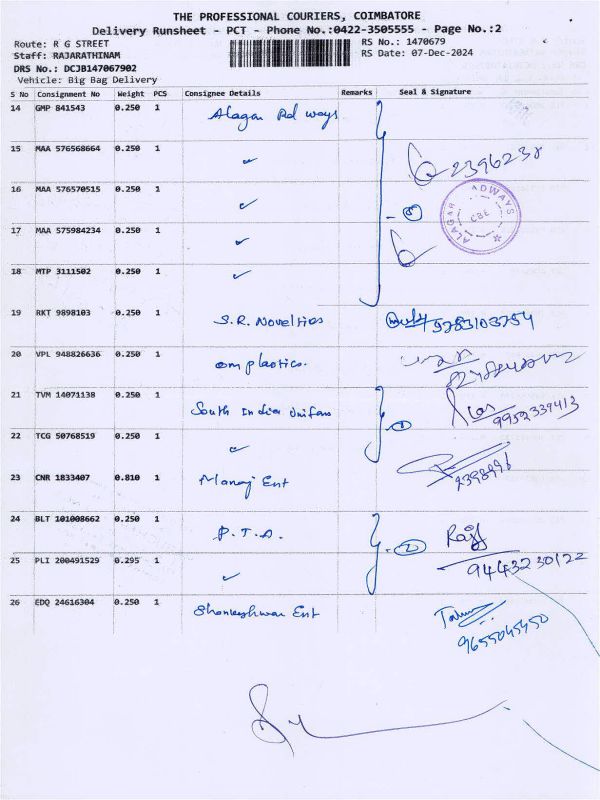 THE PROFESSIONAL COURIERS, COIMBATORE
Delivery Runsheet - PCT - Phone No.:0422-3505555 - Page No.:2
Route: R G STREET RS No.: 1470679
Staff: RAJARATHINAM RS Date: 07-Dec-2024
DRS No.: DCJB147067902
Vehicle: Big Bag Delivery
S No Consignment No Weight PCS Consignee Details Remarks Seal & Signature
14 GMP 841543 0.250 1 Alagar Ad ways
15 MAA 576568664 0.250 1 ✓ 2396238
16 MAA 576570515 0.250 1 ✓
ALAGAR ADWAYS CBE
17 MAA 575984234 0.250 1 ✓
18 MTP 3111502 0.250 1 ✓
19 RKT 9898103 0.250 1 S.R. Novelties
20 VPL 948826636 0.250 1 om plastics.
21 TVM 14071138 0.250 1 South India 9952339413
22 TCG 50768519 0.250 1 ✓
23 CNR 1833407 0.810 1 Manoj Ent
24 BLT 101008662 0.250 1 P.T.A. 2
25 PLI 200491529 0.295 1 ✓ 9443230122
26 EDQ 24616304 0.250 1 Ent 9655045450